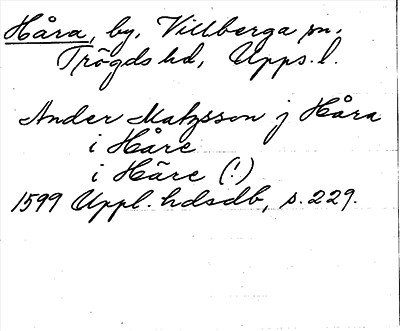 Håra, by, Villberga sn.
Trögds hd, Upps. l.
Ander Matzsson j Håra
i Håre
i Häre (!)
1599 Uppl. hdsdb, s. 229.